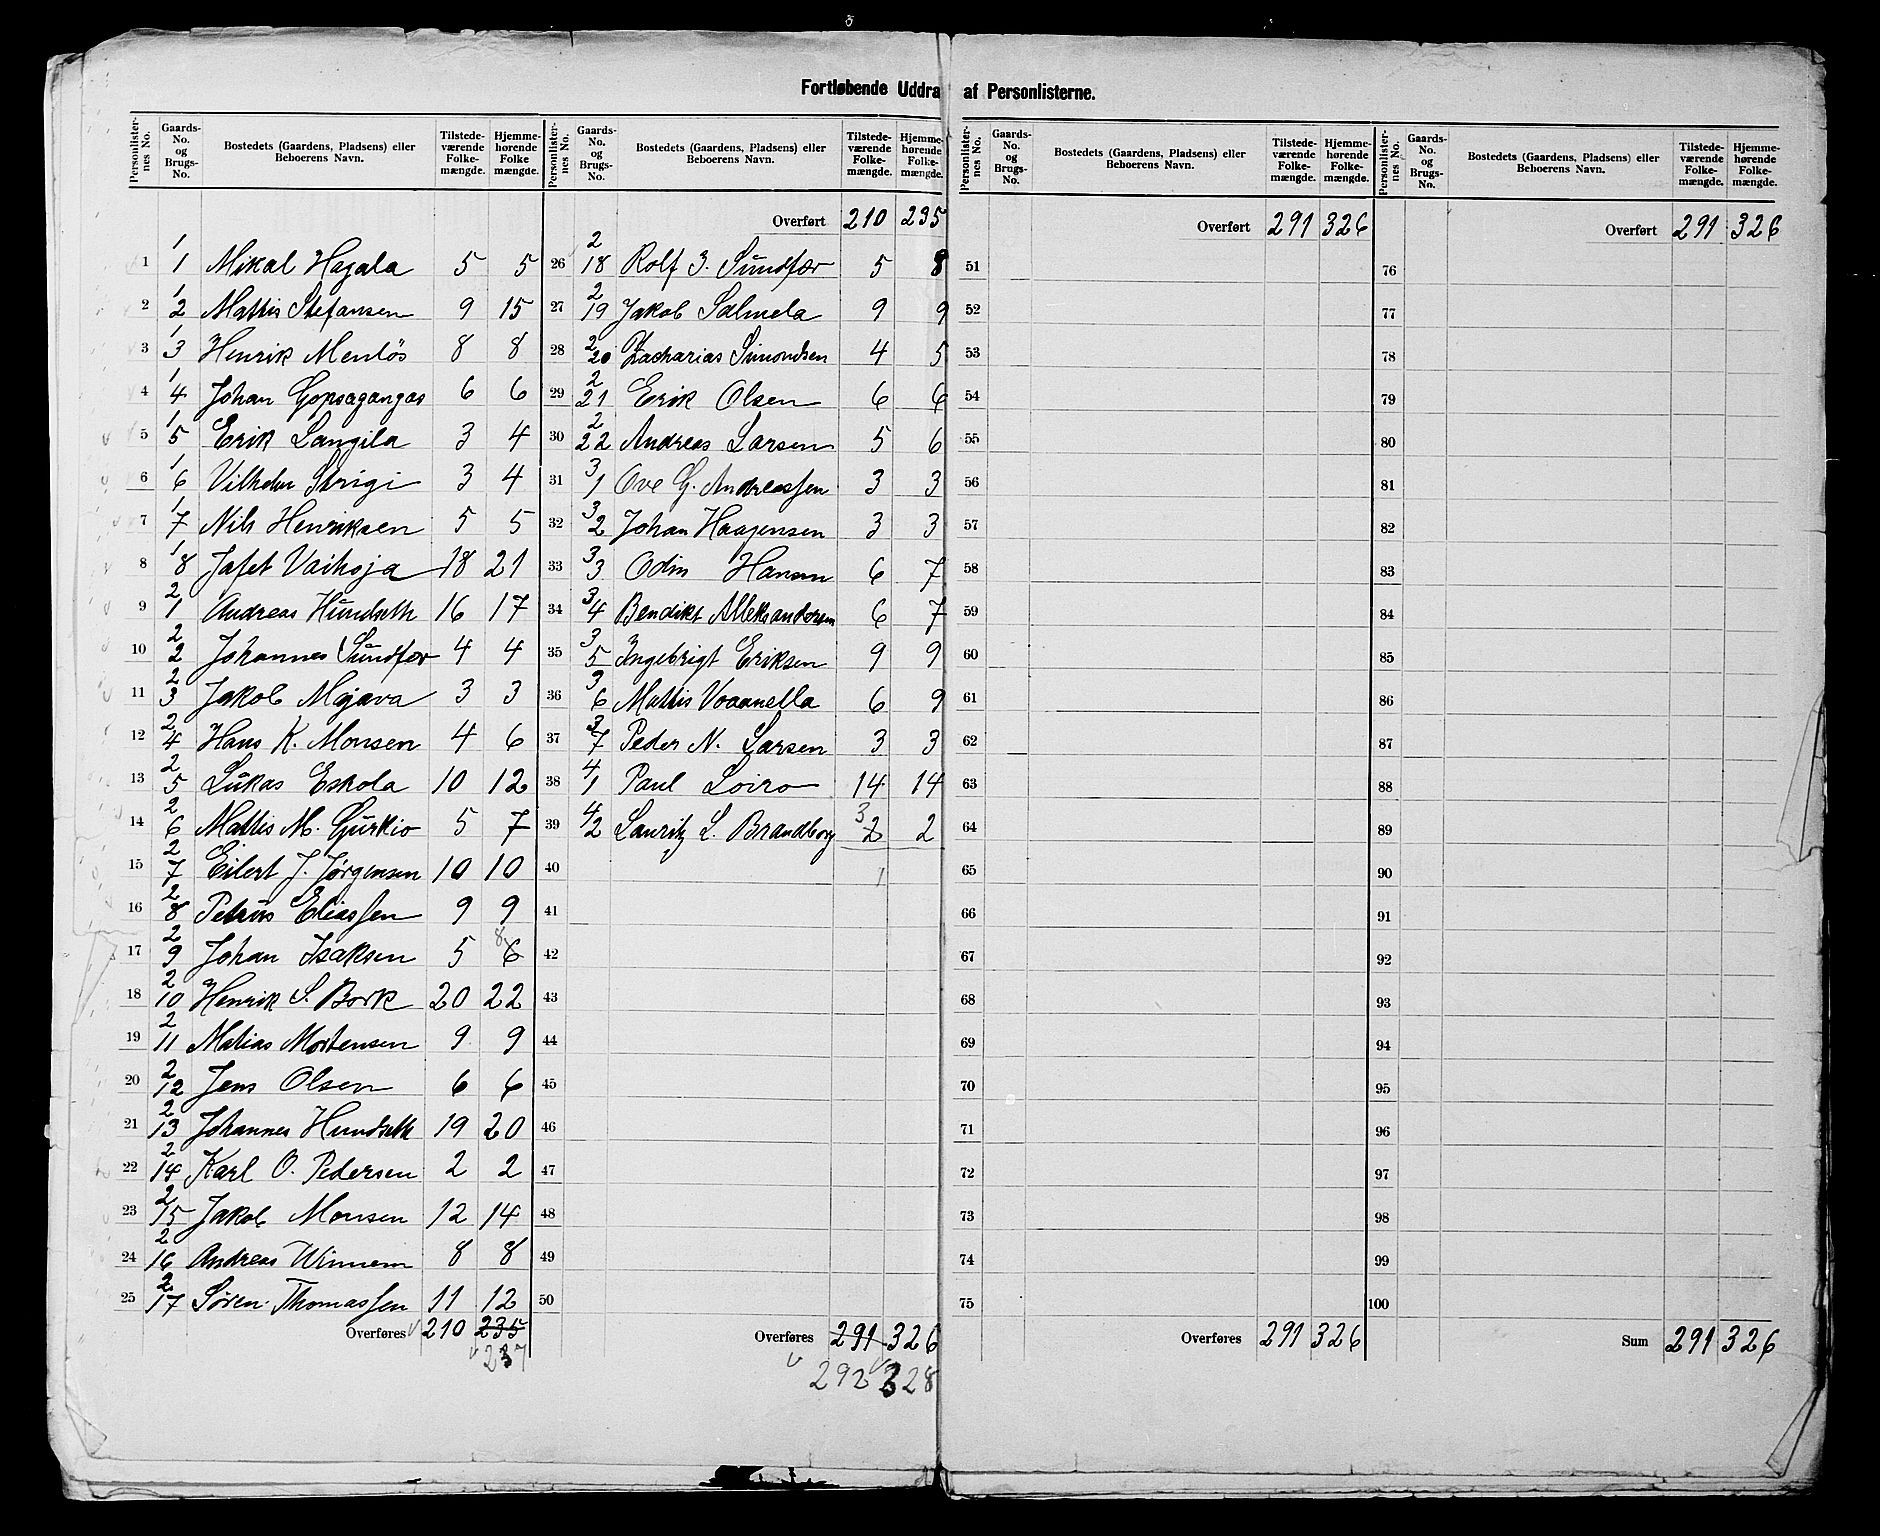 Fortløbende Uddra af Personlisterne.
Personlister-nes No. Gaards-No. og Brugs-No. Bostedets (Gaardens, Pladsens) eller Beboerens Navn. Tilstede-værende Folke-mængde. Hjemme-hørende Folke mængde.
1 1/1 Mikal Hagala 5 5
2 1/2 Mattis Stefansen 9 15
3 1/3 Henrik Menlös 8 8
4 1/4 Johan Gopsagangas 6 6
5 1/5 Erik Langila 3 4
6 1/6 Vilhelm Strigi 3 4
7 1/7 Nils Henriksen 5 5
8 1/8 Jafet Vaihoja 18 21
9 2/1 Andreas Hundseth 16 17
10 2/2 Johannes Sundfær 4 4
11 2/3 Jakob Majava 3 3
12 2/4 Hans K. Monsen 4 6
13 2/5 Lukas Eskola 10 12
14 2/6 Mattis M. Gurkio 5 7
15 2/7 Eilert J. Jørgensen 10 10
16 2/8 Petrus Eliassen 9 9
17 2/9 Johan Isaksen 5 8 6
18 2/10 Henrik S. Bork 20 22
19 2/11 Matias Mortensen 9 9
20 2/12 Jens Olsen 6 6
21 2/13 Johannes Hundseth 19 20
22 2/14 Karl O. Pedersen 2 2
23 2/15 Jakob Monsen 12 14
24 2/16 Andreas Winnem 8 8
25 2/17 Søren Thomassen 11 12
Overføres 210 235
237
Personlister-nes No. Gaards-No. og Brugs-No. Bostedets (Gaardens, Pladsens) eller Beboerens Navn. Tilstede-værende Folke-mængde. Hjemme-hørende Folke-mængde.
Overført 210 235
26 2/18 Rolf J. Sundfær 5 8
27 2/19 Jakob Salmela 9 9
28 2/20 Zacharias Simondsen 4 5
29 2/21 Erik Olsen 6 6
30 2/22 Andreas Larsen 5 6
31 3/1 Ove G. Andreassen 3 3
32 3/2 Johan Haagensen 3 3
33 3/3 Odin Hansen 6 7
34 3/4 Bendikt Alleksandersen 6 7
35 3/5 Ingebrigt Eriksen 9 9
36 3/6 Mattis Voaanella 6 9
37 3/7 Peder N. Larsen 3 3
38 4/1 Paul Loiro 14 14
39 4/2 Lauritz L. Brandborg 3 2 2
40 1
41
42
43
44
45
46
47
48
49
50
Overføres 291 326
292 328
Personlister-nes No. Gaards-No. og Brugs-No. Bostedets (Gaardens, Pladsens) eller Beboerens Navn. Tilstede-værende Folke-mængde. Hjemme-hørende Folke-mængde.
Overført 291 326
51
52
53
54
55
56
57
58
59
60
61
62
63
64
65
66
67
68
69
70
71
72
73
74
75
Overføres 291 326
Personlister-nes No. Gaards-No. og Brugs-No. Bostedets (Gaardens, Pladsens) eller Beboerens Navn. Tilstede-værende Folke-mængde. Hjemme-hørende Folke-mængde.
Overført 291 326
76
77
78
79
80
81
82
83
84
85
86
87
88
89
90
91
92
93
94
95
96
97
98
99
100
Sum 291 326